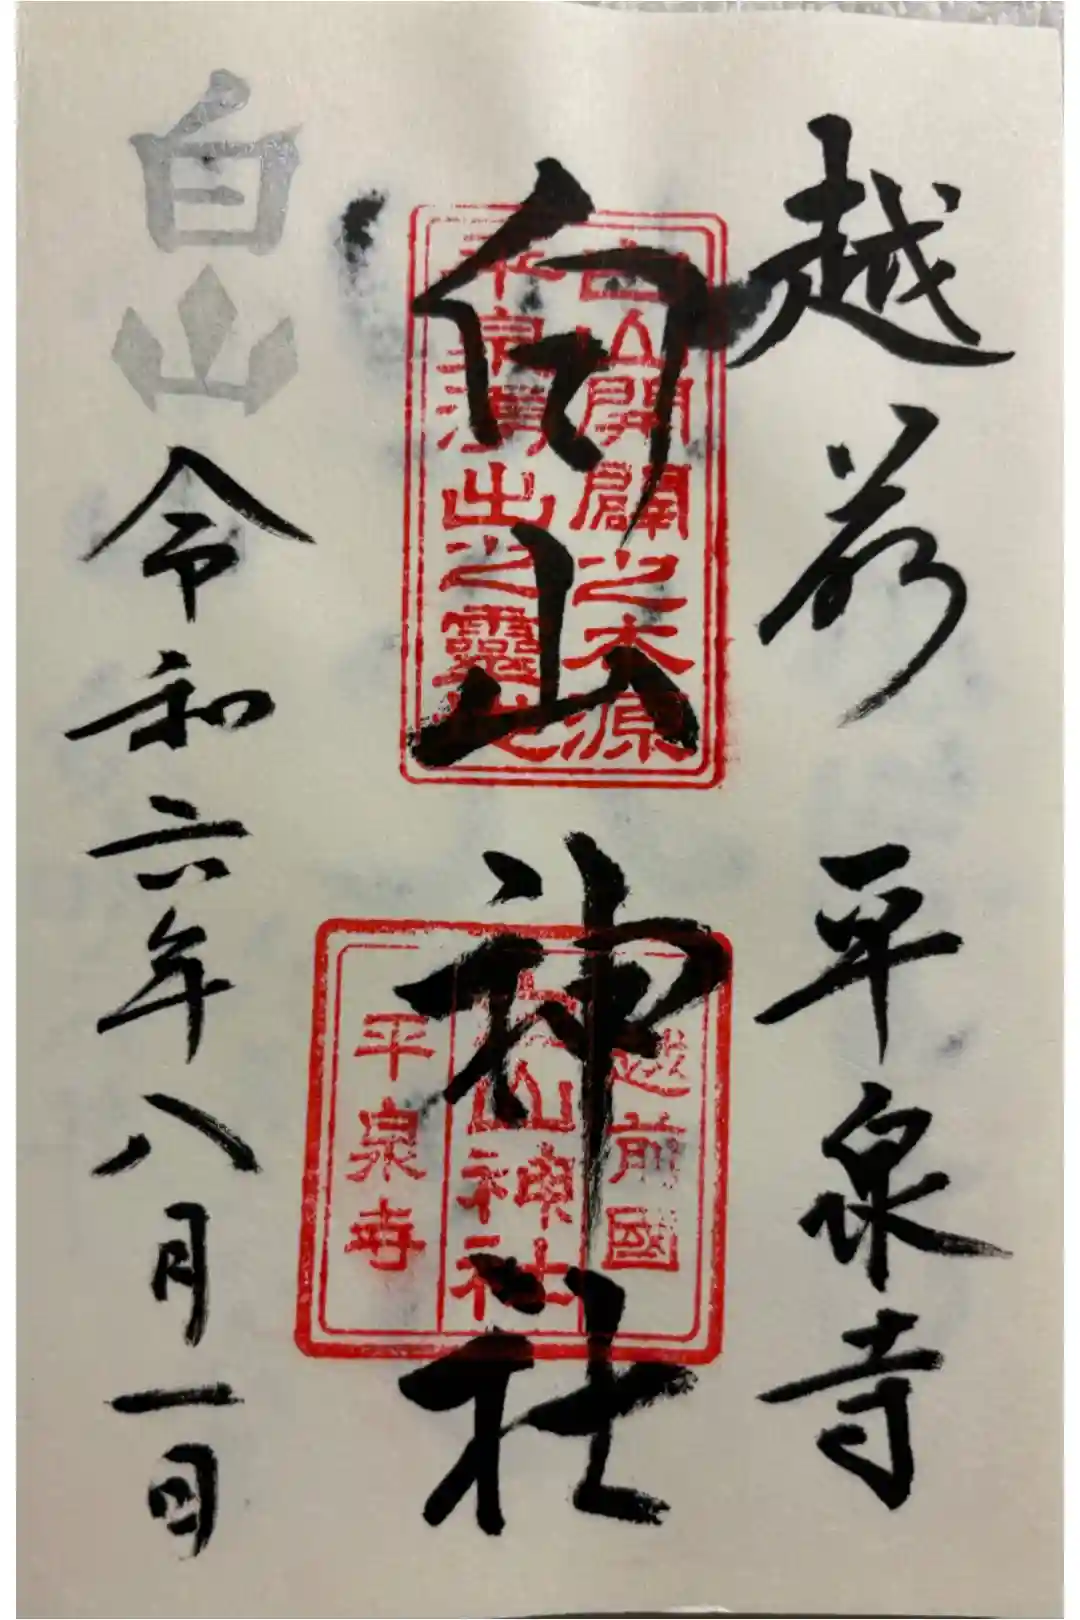 越前 平泉寺
白山神社
白山開闢之本源
平泉涌出之靈地
越前國
白山神社
平泉寺
白山
令和六年八月一日